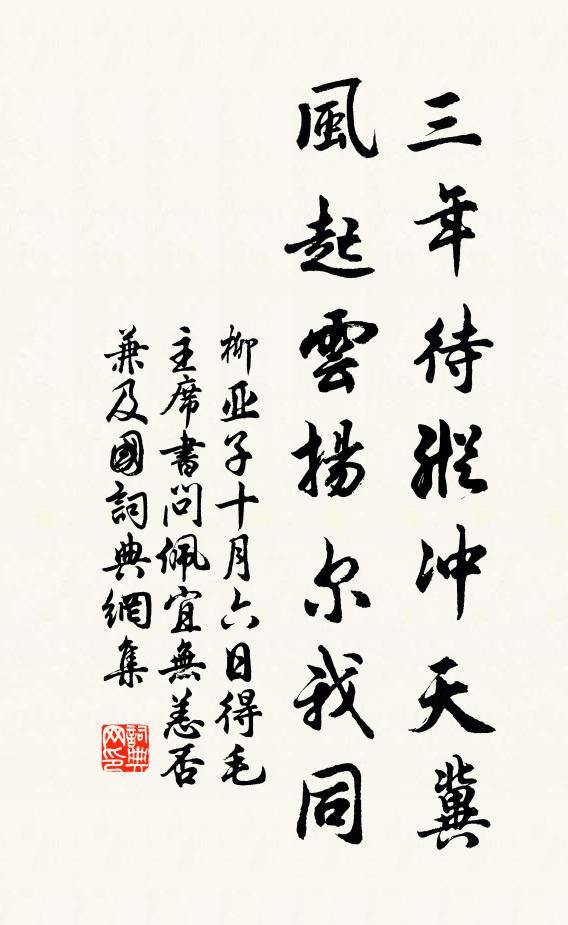 三年待縱冲天冀
風起雲揚尔我同
柳亚子十月六日得毛
主席書問佩宜無恙否
兼及國詞典網集
詞典网印